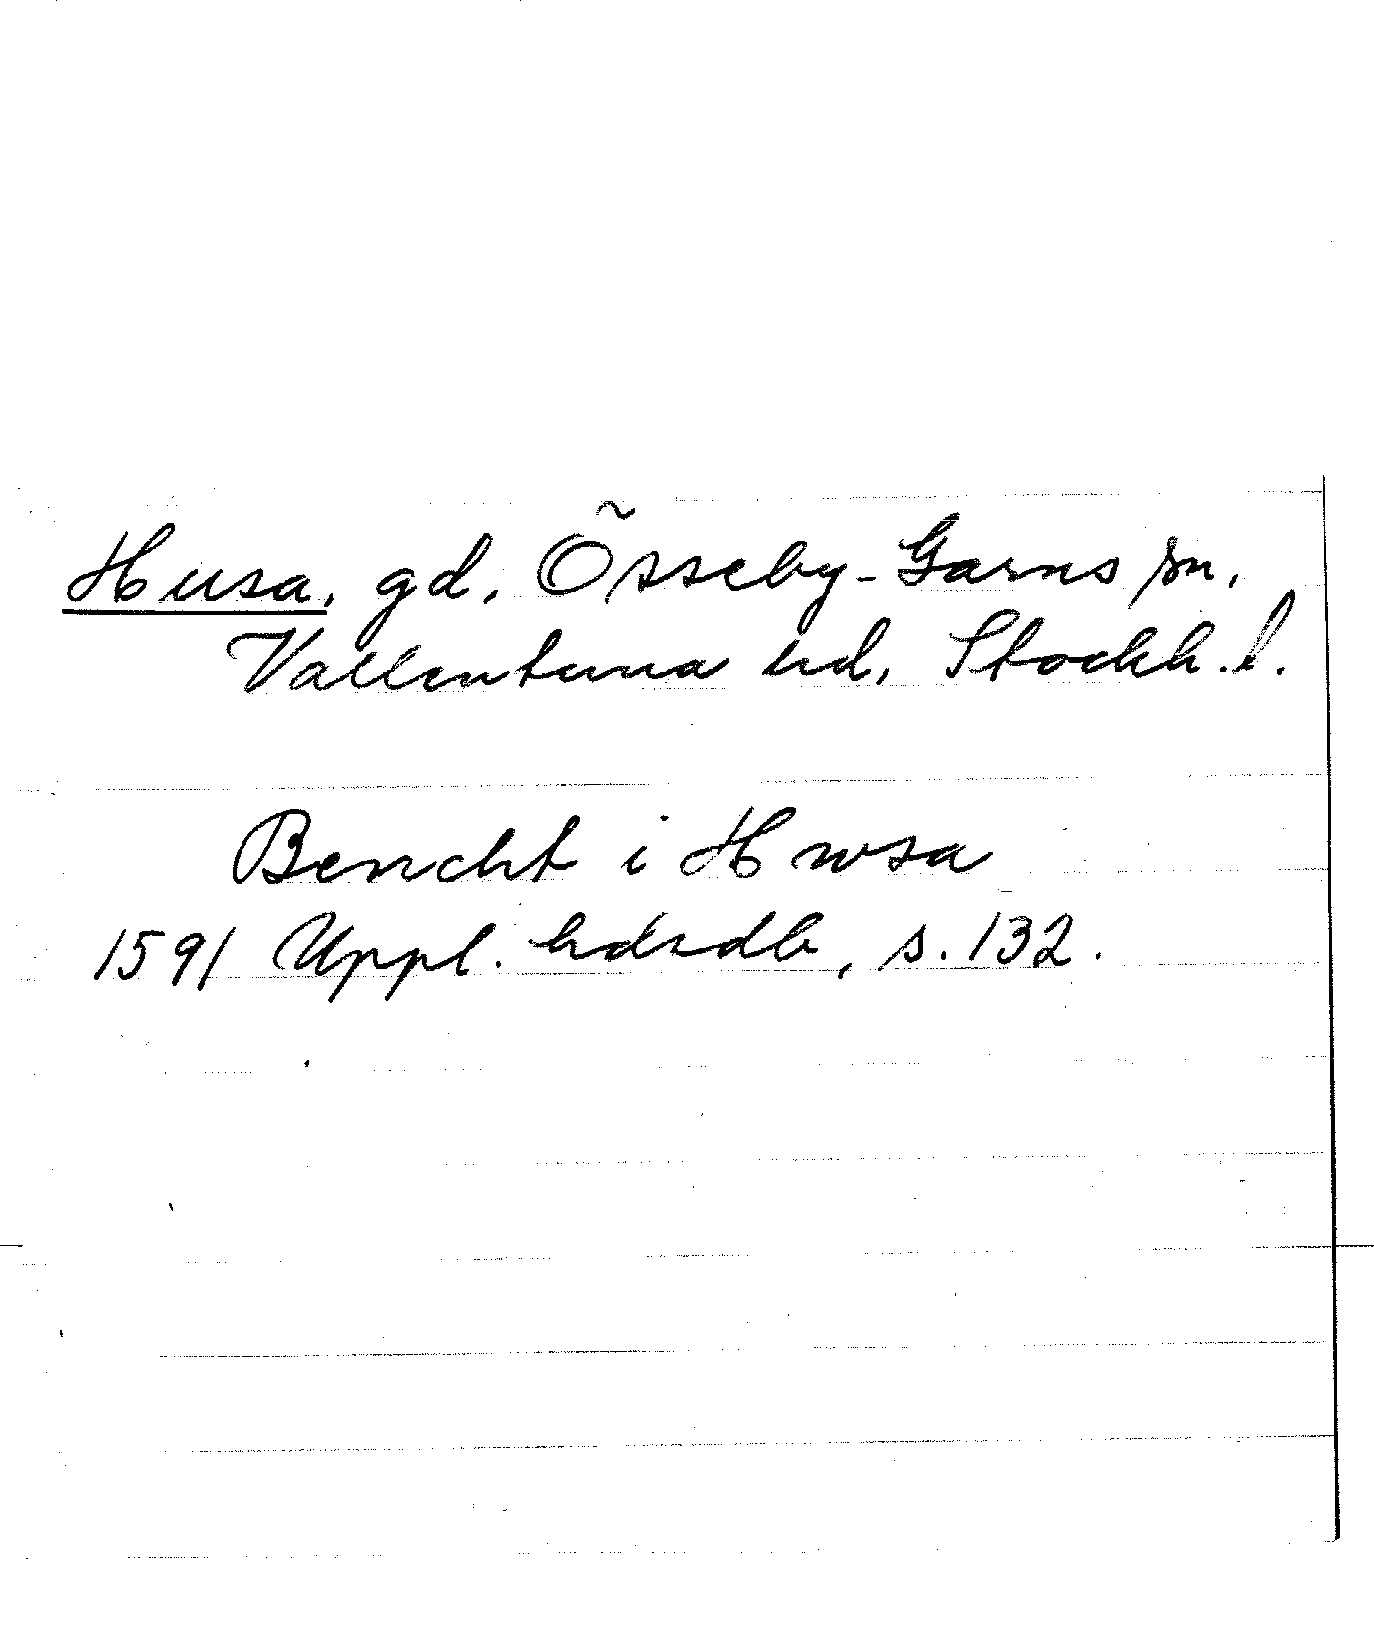 Husa, gd, Össeby-Garns sn,
Vallentuna hd, Stockh. l.
Bencht i Hwsa
1591 Uppl. hdsdb, s. 132.